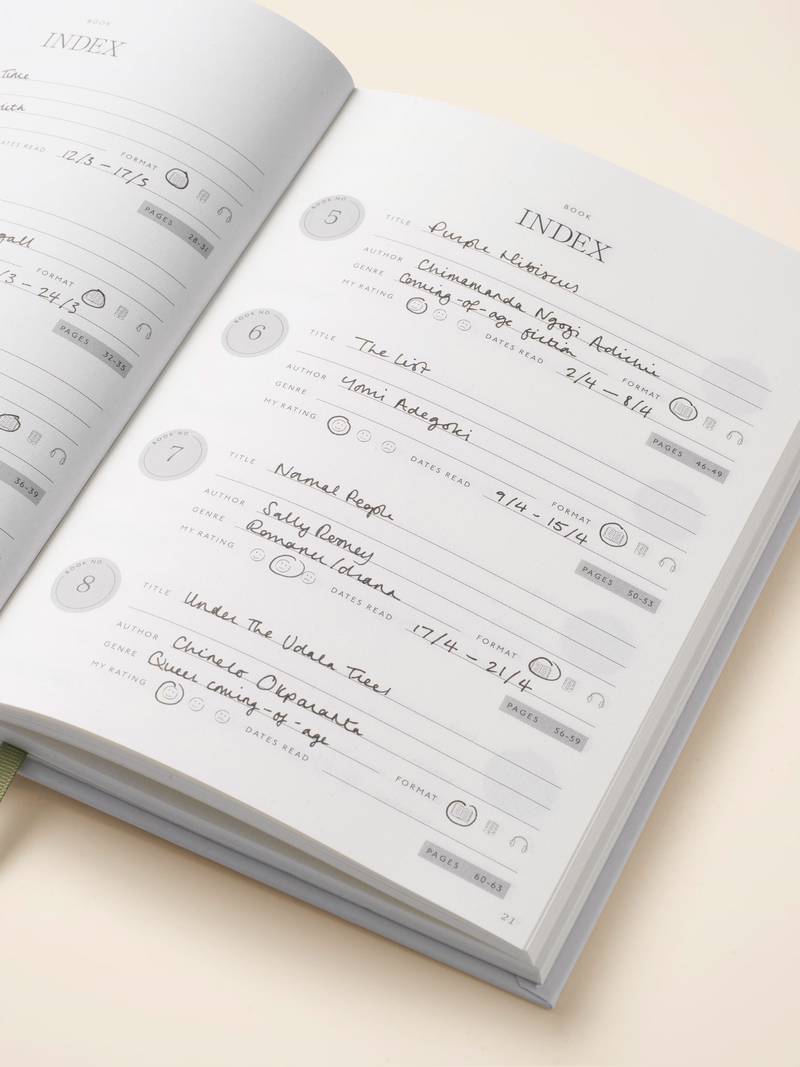 BOOK
INDEX
Time
DATES READ 12/3 – 17/3
FORMAT
PAGES 28-31
FORMAT
/3 – 24/3
PAGES 32-35
36-39
BOOK
INDEX
BOOK NO.
5
TITLE Purple Hibiscus
AUTHOR Chimamanda Ngozi Adichie
GENRE Coming-of-age fiction
MY RATING
DATES READ 2/4 – 8/4
FORMAT
PAGES 46-49
BOOK NO.
6
TITLE The List
AUTHOR Yomi Adegoki
GENRE
MY RATING
DATES READ 9/4 - 15/4
FORMAT
PAGES 50-53
BOOK NO.
7
TITLE Normal People
AUTHOR Sally Rooney
GENRE Romance/drama
MY RATING
DATES READ 17/4 – 21/4
FORMAT
PAGES 56-59
BOOK NO.
8
TITLE Under The Udala Trees
AUTHOR Chinelo Okparanta
GENRE Queer coming-of-age
MY RATING
DATES READ
FORMAT
PAGES 60-63
21